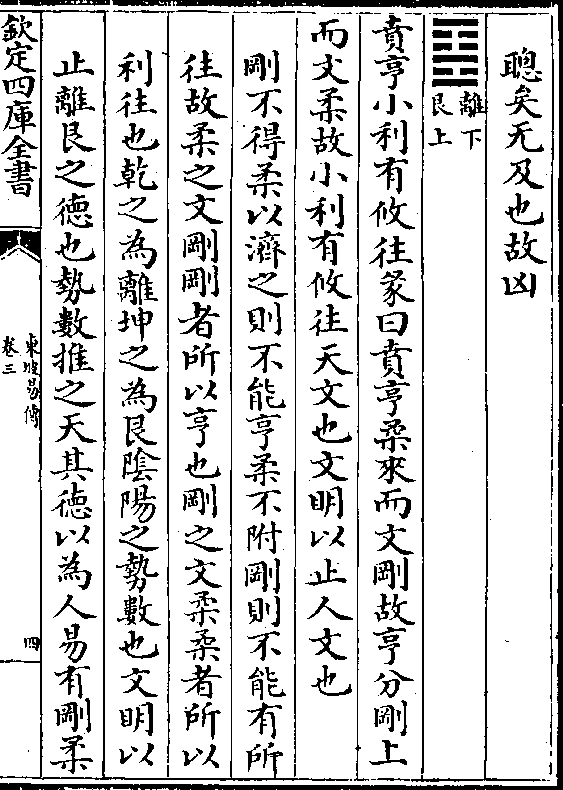 聰矣无及也故凶
離下
艮上
賁亨小利有攸往彖曰賁亨柔來而文剛故亨分剛上
而文柔故小利有攸往天文也文明以止人文也
剛不得柔以濟之則不能亨柔不附剛則不能有所
往故柔之文剛剛者所以亨也剛之文柔柔者所以
利往也乾之為離坤之為艮陰陽之勢數也文明以
止離艮之德也勢數推之天其德以為人易有剛柔
欽定四庫全書
東坡易傳
卷三
四